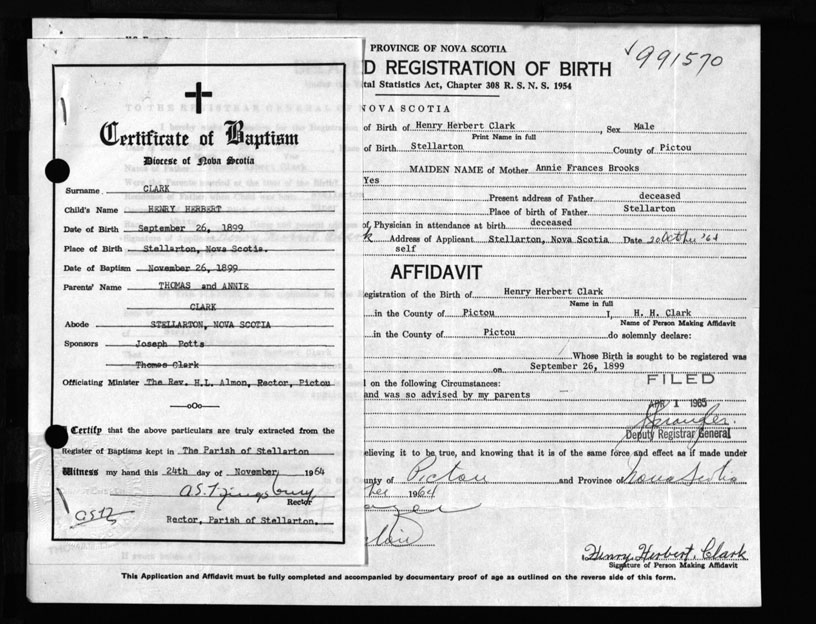 Certificate of Baptism
Diocese of Nova Scotia
Surname CLARK
Child's Name HENRY HERBERT
Date of Birth September 26, 1899
Place of Birth Stellarton, Nova Scotia.
Date of Baptism November 26, 1899
Parents' Name THOMAS and ANNIE
CLARK
Abode STELLARTON, NOVA SCOTIA
Sponsors Joseph Potts
Thomas Clark
Officiating Minister The Rev. H.L. Almon, Rector, Pictou
—oOo—
I Certify that the above particulars are truly extracted from the
Register of Baptisms kept in The Parish of Stellarton
Witness my hand this 24th day of November, 1964
Rector
Rector, Parish of Stellarton.
PROVINCE OF NOVA SCOTIA
991570
D REGISTRATION OF BIRTH
tal Statistics Act, Chapter 308 R. S. N. S. 1954
NOVA SCOTIA
of Birth of Henry Herbert Clark, Sex Male
Print Name in full
of Birth Stellarton County of Pictou
MAIDEN NAME of Mother Annie Frances Brooks
Yes
Present address of Father deceased
Place of birth of Father Stellarton
of Physician in attendance at birth deceased
k Address of Applicant Stellarton, Nova Scotia Date 20 October '64
self
AFFIDAVIT
Registration of the Birth of Henry Herbert Clark
Name in full
in the County of Pictou I, H. H. Clark
Name of Person Making Affidavit
in the County of Pictou do solemnly declare:
Whose Birth is sought to be registered was
on September 26, 1899
d on the following Circumstances: FILED
and was so advised by my parents
APR 1 1965
Deputy Registrar General
elieving it to be true, and knowing that it is of the same force and effect as if made under
County of Pictou and Province of Nova Scotia
ber 1964
Henry Herbert Clark
Signature of Person Making Affidavit
This Application and Affidavit must be fully completed and accompanied by documentary proof of age as outlined on the reverse side of this form.